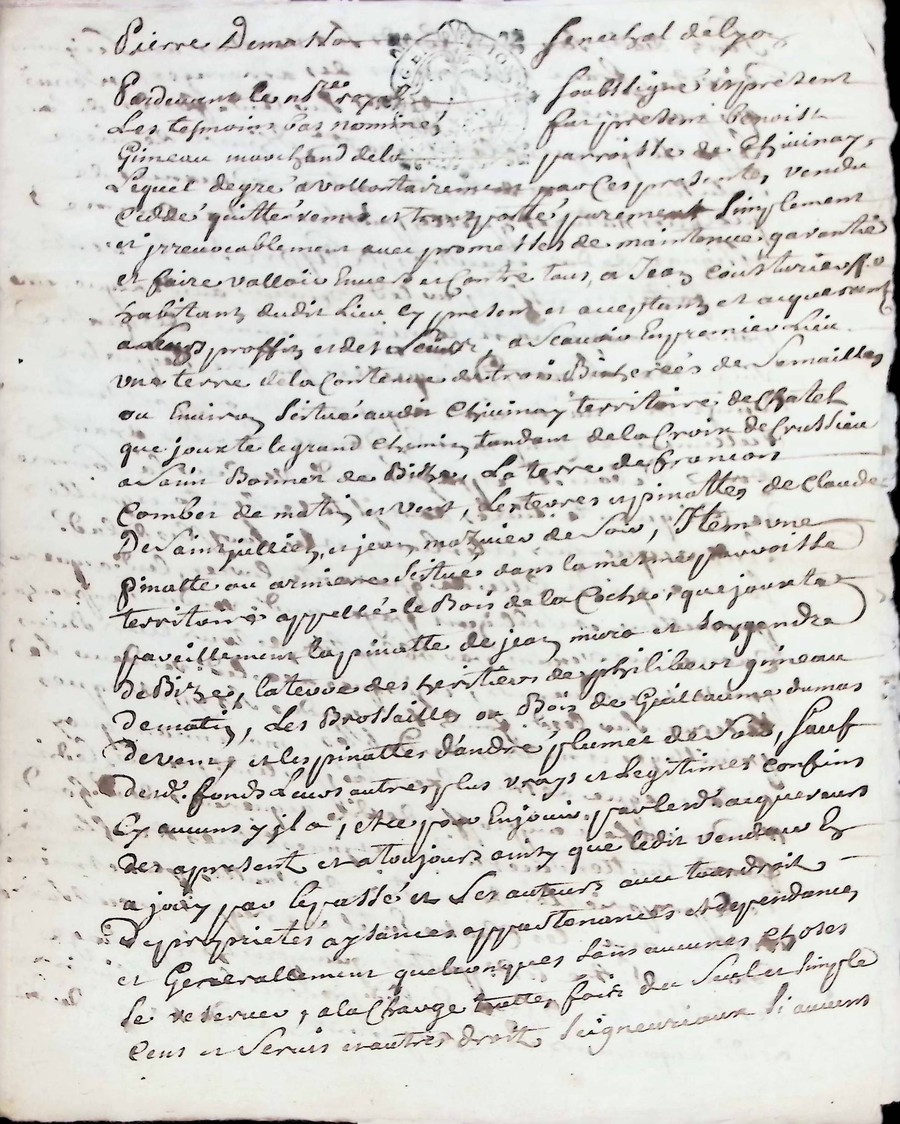 Pierre Demasso senechal de lyon
Pardevant le nore royal soubsigné et present
Les tesmoins bas nommés fut present benoist
Gimeau marchand de la parroisse de Chivinay,
Lequel de gré a vollontairement par ces presentes vendu
Ceddé quitté remis et transporté purement simplement
et irrevocablement avec promesses de maintenue garantie
et faire valloir Envers et Contre tous, a Jean Cousturier
habitant dudit Lieu Cy present et acceptant et acquerant
a Leurs proffit et des Leurs, a Scavoir En premier Lieu
une terre de la Contenue de trois Bicherées de Semailles
ou Environ Scitué audit Chivinay territoire de Chatel
que jouxte le grand Chemin tendant de la Croix de Crussieu
a Saint Bonnet de Bize, La terre de francois
Combet de matin et vent, Les terres et pinattes de Claude
De Saint jullien, et jean maznier de Soir, Item une
pinatte ou armiere Scitué dans la mesme parroisse
territoire appellé le Bois de la Coche, que jouxte
pareillement la pinatte de jean et Son gendre
de Bize, la terre des heritiers de philibert gimeau
de matin, Les Brossailles ou Bois de Guillaume dumas
de vent, et les pinattes d'andré plumet de Soir, Sauf
desd. fonds Leurs autres plus vrays et Legitimes confins
Cy aucuns y jl a, et ce pour En jouir par lesd acquereurs
Des apresent et a toujours ainsy que ledit vendeur En
a jouy par le passé et Ses auteurs avec tous droit
De proprietés aysances appartenances et dependances
et Generallement quelconques Sans aucunes choses
Se reserver, a la Charge touttes fois du Seul et Simple
Cens et Servis et autres droits Seigneuriaux Si aucuns